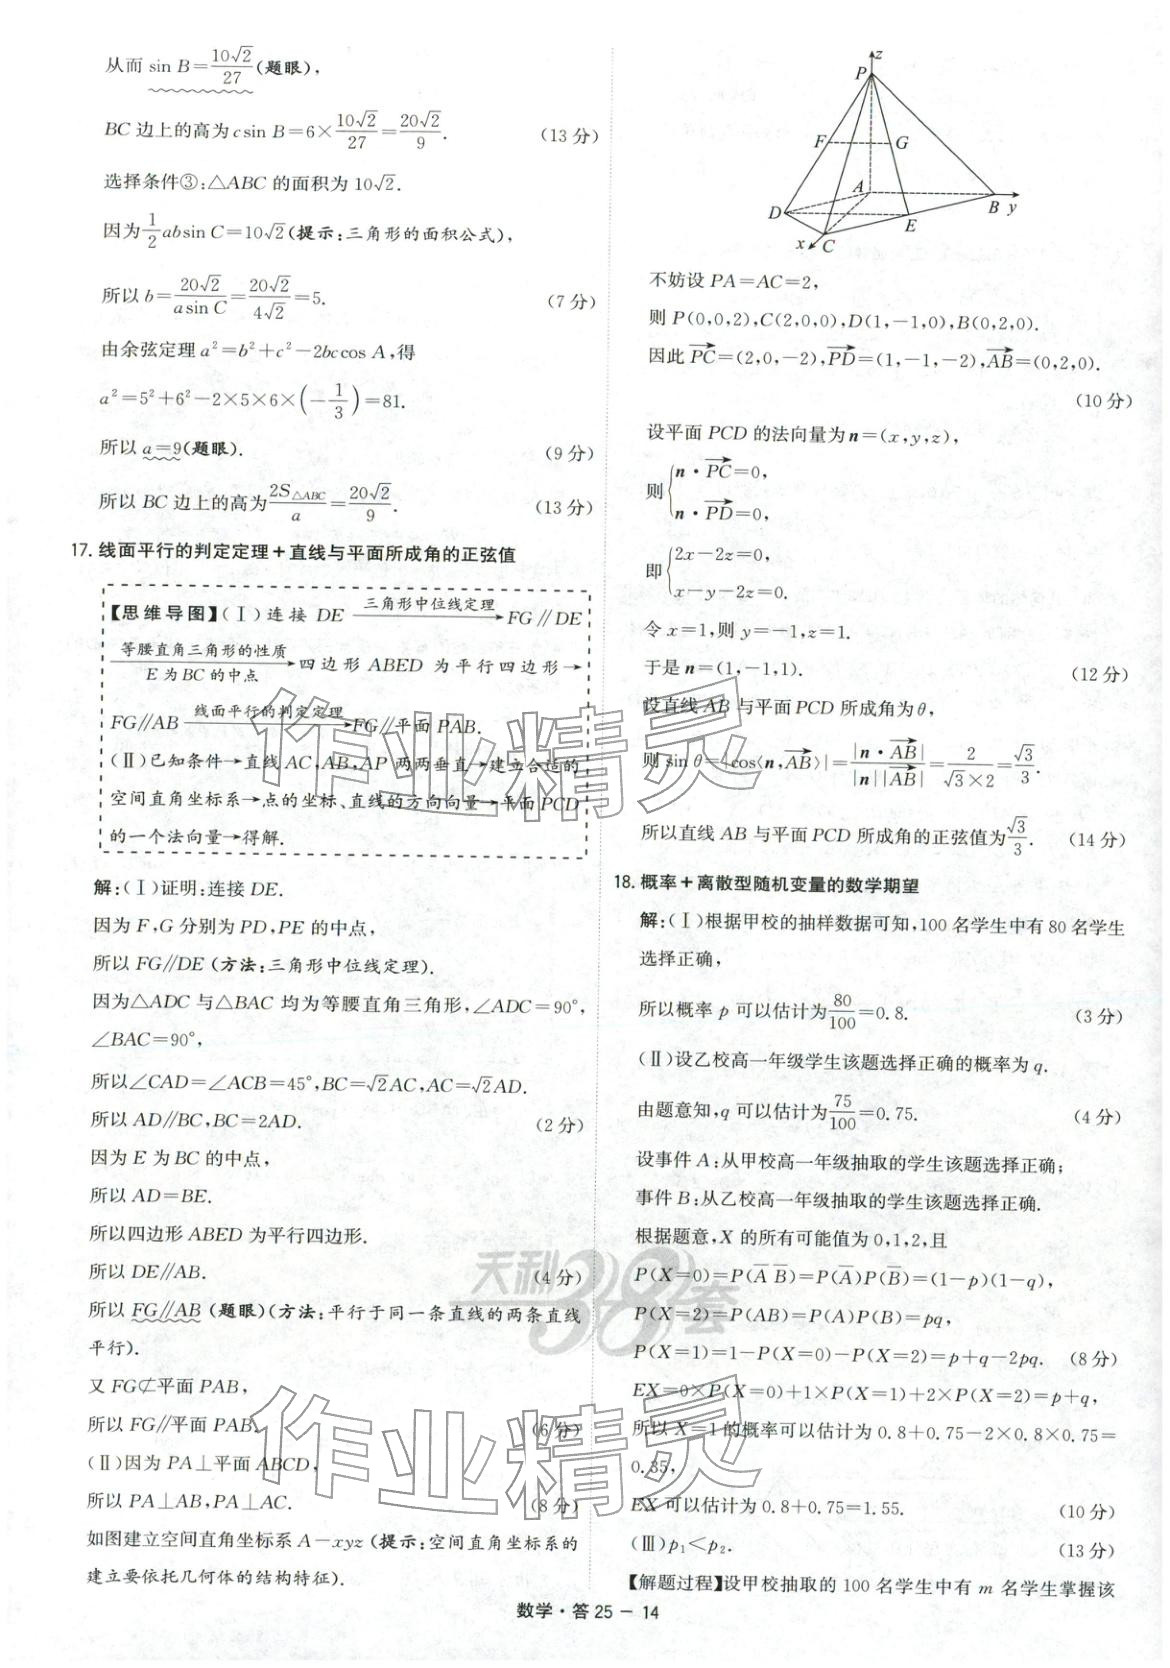 从而 sin B=10√2/27(题眼),
BC 边上的高为 csin B=6×10√2/27=20√2/9. (13 分)
选择条件③:△ABC 的面积为 10√2.
因为1/2absin C=10√2(提示:三角形的面积公式),
所以 b=20√2/asin C=20√2/4√2=5. (7 分)
由余弦定理 a²=b²+c²-2bccos A,得
a²=5²+6²-2×5×6×(-1/3)=81.
所以 a=9(题眼). (9 分)
所以 BC 边上的高为2S△ABC/a=20√2/9. (13 分)
17. 线面平行的判定定理+直线与平面所成角的正弦值
【思维导图】(Ⅰ)连接 DE 三角形中位线定理→FG∥DE
等腰直角三角形的性质 E 为 BC 的中点→四边形 ABED 为平行四边形→
FG∥AB 线面平行的判定定理→FG∥平面 PAB.
(Ⅱ)已知条件→直线 AC,AB,AP 两两垂直→建立合适的
空间直角坐标系→点的坐标、直线的方向向量→平面 PCD
的一个法向量→得解.
解:(Ⅰ)证明:连接 DE.
因为 F,G 分别为 PD,PE 的中点,
所以 FG∥DE (方法:三角形中位线定理).
因为△ADC 与△BAC 均为等腰直角三角形,∠ADC=90°,
∠BAC=90°,
所以∠CAD=∠ACB=45°,BC=√2AC,AC=√2AD.
所以 AD∥BC,BC=2AD. (2 分)
因为 E 为 BC 的中点,
所以 AD=BE.
所以四边形 ABED 为平行四边形.
所以 DE∥AB. (4 分)
所以 FG∥AB (题眼)(方法:平行于同一条直线的两条直线
平行).
又 FG⊄平面 PAB,
所以 FG∥平面 PAB. (6 分)
(Ⅱ)因为 PA⊥平面 ABCD,
所以 PA⊥AB,PA⊥AC. (8 分)
如图建立空间直角坐标系 A-xyz (提示:空间直角坐标系的
建立要依托几何体的结构特征).
z
P
F
G
A
D
E
B
y
x
C
不妨设 PA=AC=2,
则 P(0,0,2),C(2,0,0),D(1,-1,0),B(0,2,0).
因此 PC→=(2,0,-2),PD→=(1,-1,-2),AB→=(0,2,0).
(10 分)
设平面 PCD 的法向量为 n=(x,y,z),
则{n·PC→=0,
n·PD→=0,
即{2x-2z=0,
x-y-2z=0.
令 x=1,则 y=-1,z=1.
于是 n=(1,-1,1). (12 分)
设直线 AB 与平面 PCD 所成角为θ,
则 sin θ=|cos⟨n,AB→⟩|=|n·AB→|/|n||AB→|=2/√3×2=√3/3.
所以直线 AB 与平面 PCD 所成角的正弦值为√3/3. (14 分)
18. 概率+离散型随机变量的数学期望
解:(Ⅰ)根据甲校的抽样数据可知,100 名学生中有 80 名学生
选择正确,
所以概率 p 可以估计为80/100=0.8. (3 分)
(Ⅱ)设乙校高一年级学生该题选择正确的概率为 q.
由题意知,q 可以估计为75/100=0.75. (4 分)
设事件 A:从甲校高一年级抽取的学生该题选择正确;
事件 B:从乙校高一年级抽取的学生该题选择正确.
根据题意,X 的所有可能值为 0,1,2,且
P(X=0)=P(A̅ B̅)=P(A̅)P(B̅)=(1-p)(1-q),
P(X=2)=P(AB)=P(A)P(B)=pq,
P(X=1)=1-P(X=0)-P(X=2)=p+q-2pq. (8 分)
EX=0×P(X=0)+1×P(X=1)+2×P(X=2)=p+q,
所以 X=1 的概率可以估计为 0.8+0.75-2×0.8×0.75=
0.35,
EX 可以估计为 0.8+0.75=1.55. (10 分)
(Ⅲ)p₁<p₂. (13 分)
【解题过程】设甲校抽取的 100 名学生中有 m 名学生掌握该
数学·答 25-14
作业精灵
天利38套
作业精灵